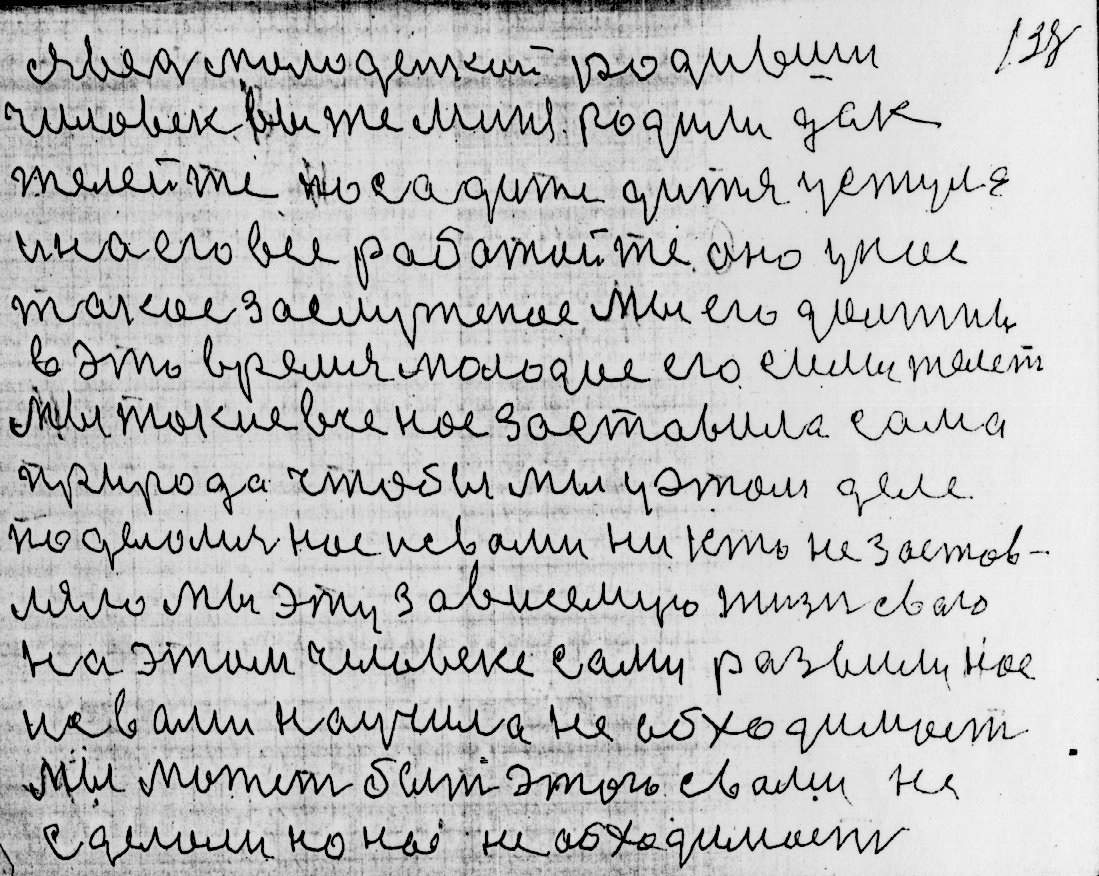 138
явед молодецкий родивши
человек вы же миня родили дак
желейте посадите дитя устуле
инаего все работайте оно унас
такое заслуженое мы его должны
в это время молодие его сими жалет
мы такие вченое заставила сама
природа чтобы мы уэтом деле
поделомя нас исвами ни кто не застов-
ляло мы эту зависемую жизн сваю
на этом человеке сами развили нас
исвами научила не обходимост
мы может быт этого свами не
сделали но нас не обходимост